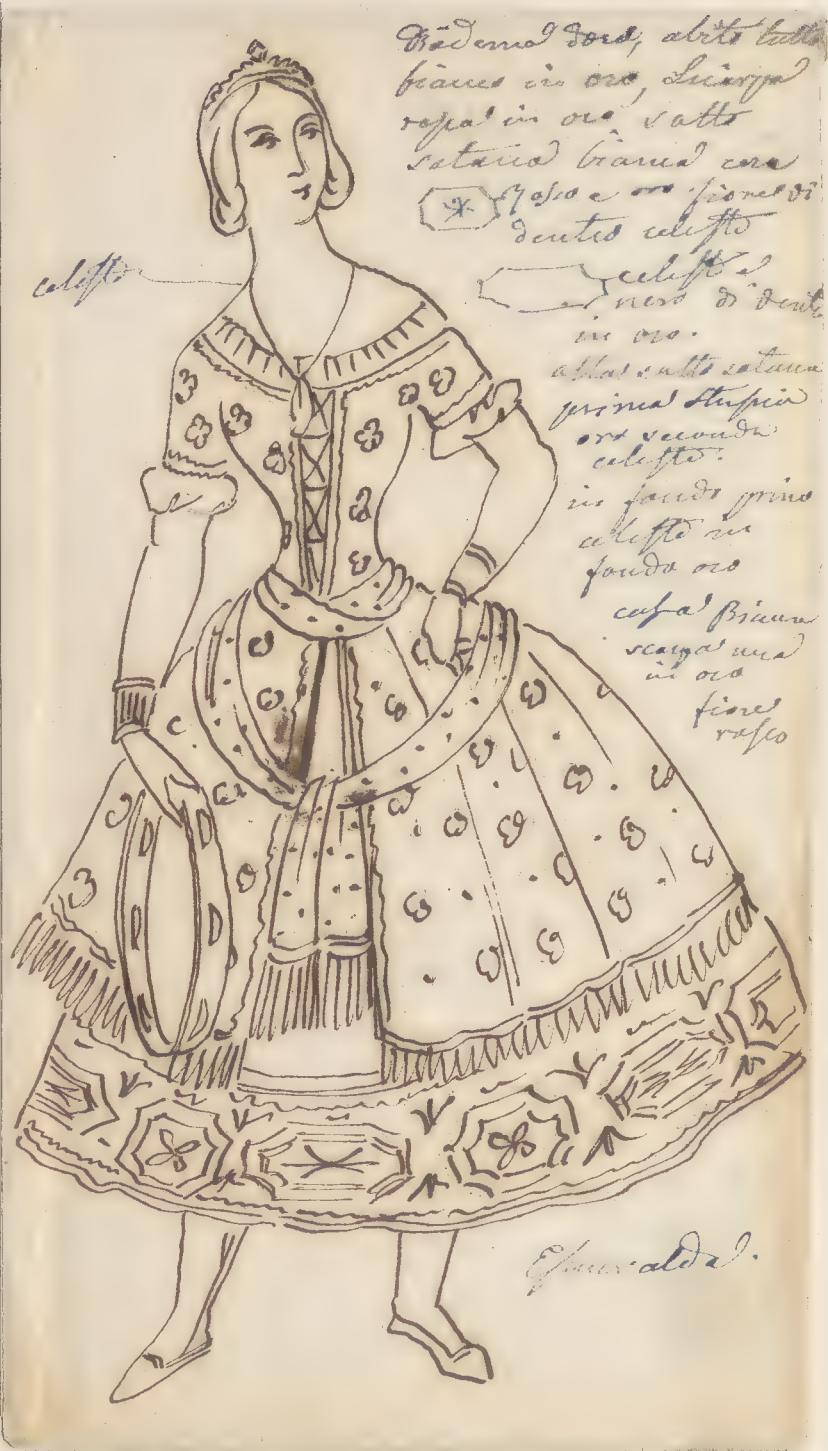 Diadema d'oro, abito tutto
bianco in oro, Sciarpa
rosa in oro sotto
sotana bianca con
rosso e oro fiore di
dentro celeste
celeste
celeste e
nero di dentro
in oro.
alla sotto sotana
prima striscia
oro seconda
celeste.
in fondo primo
celeste in
fondo oro
Bianca
in oro
fiore
rosso
Esmeralda.